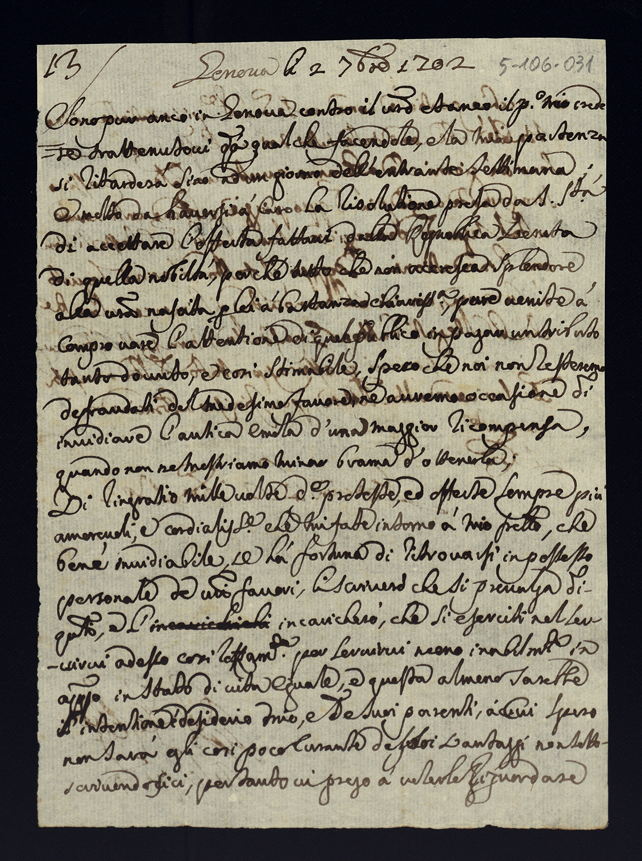 13/ Genova li 2 7bre 1702 5-106-031
Sono pur anco in Genova contro il vro et anco il p.o mio crede
re trattenutovi p qualche facendola, e la mia partenza
si ritarderà sino ad un giorno dell'entrante settimana;
E molto da haversi a caro la risolutione presa da S. Stà
di accettare l'offerta fattavi dalla Republica Veneta
di quella nobiltà, perche tutto che non accresca splendore
alla vra nascita p lei à bastanza chiariss.a, pure venite à
comprovare l'attentione di quel publico in pagar un tributo
tanto dovuto, e così stimabile, spero che noi non resteremo
defraudati del medesimo favore, ne avremo occasione di
invidiare l'antica d'una maggior ricompensa,
quando non ne mostriamo minor brama d'ottenerla;
Vi ringratio mille volte d.e proteste, ed offerte sempre più
amorevoli, e cordialiss.e che mi fate intorno à mio frello, che
bene invidiabile, se hà fortuna di ritrovarsi in possesso
personale de vri favori, li scriverò che si prevalga di
qsto, e l'incaricherò, che si eserciti nel ser-
virvi adesso così per servirvi meno inabilmte in
appo in stato di vita eguale, e questa almeno sarebbe
l'intentione, desiderio mio, e de suoi parenti, à cui spero
non sarà egli così poco curante de suoi vantaggi non sotto-
scrivendosici, per tanto vi prego à volerle riguardare